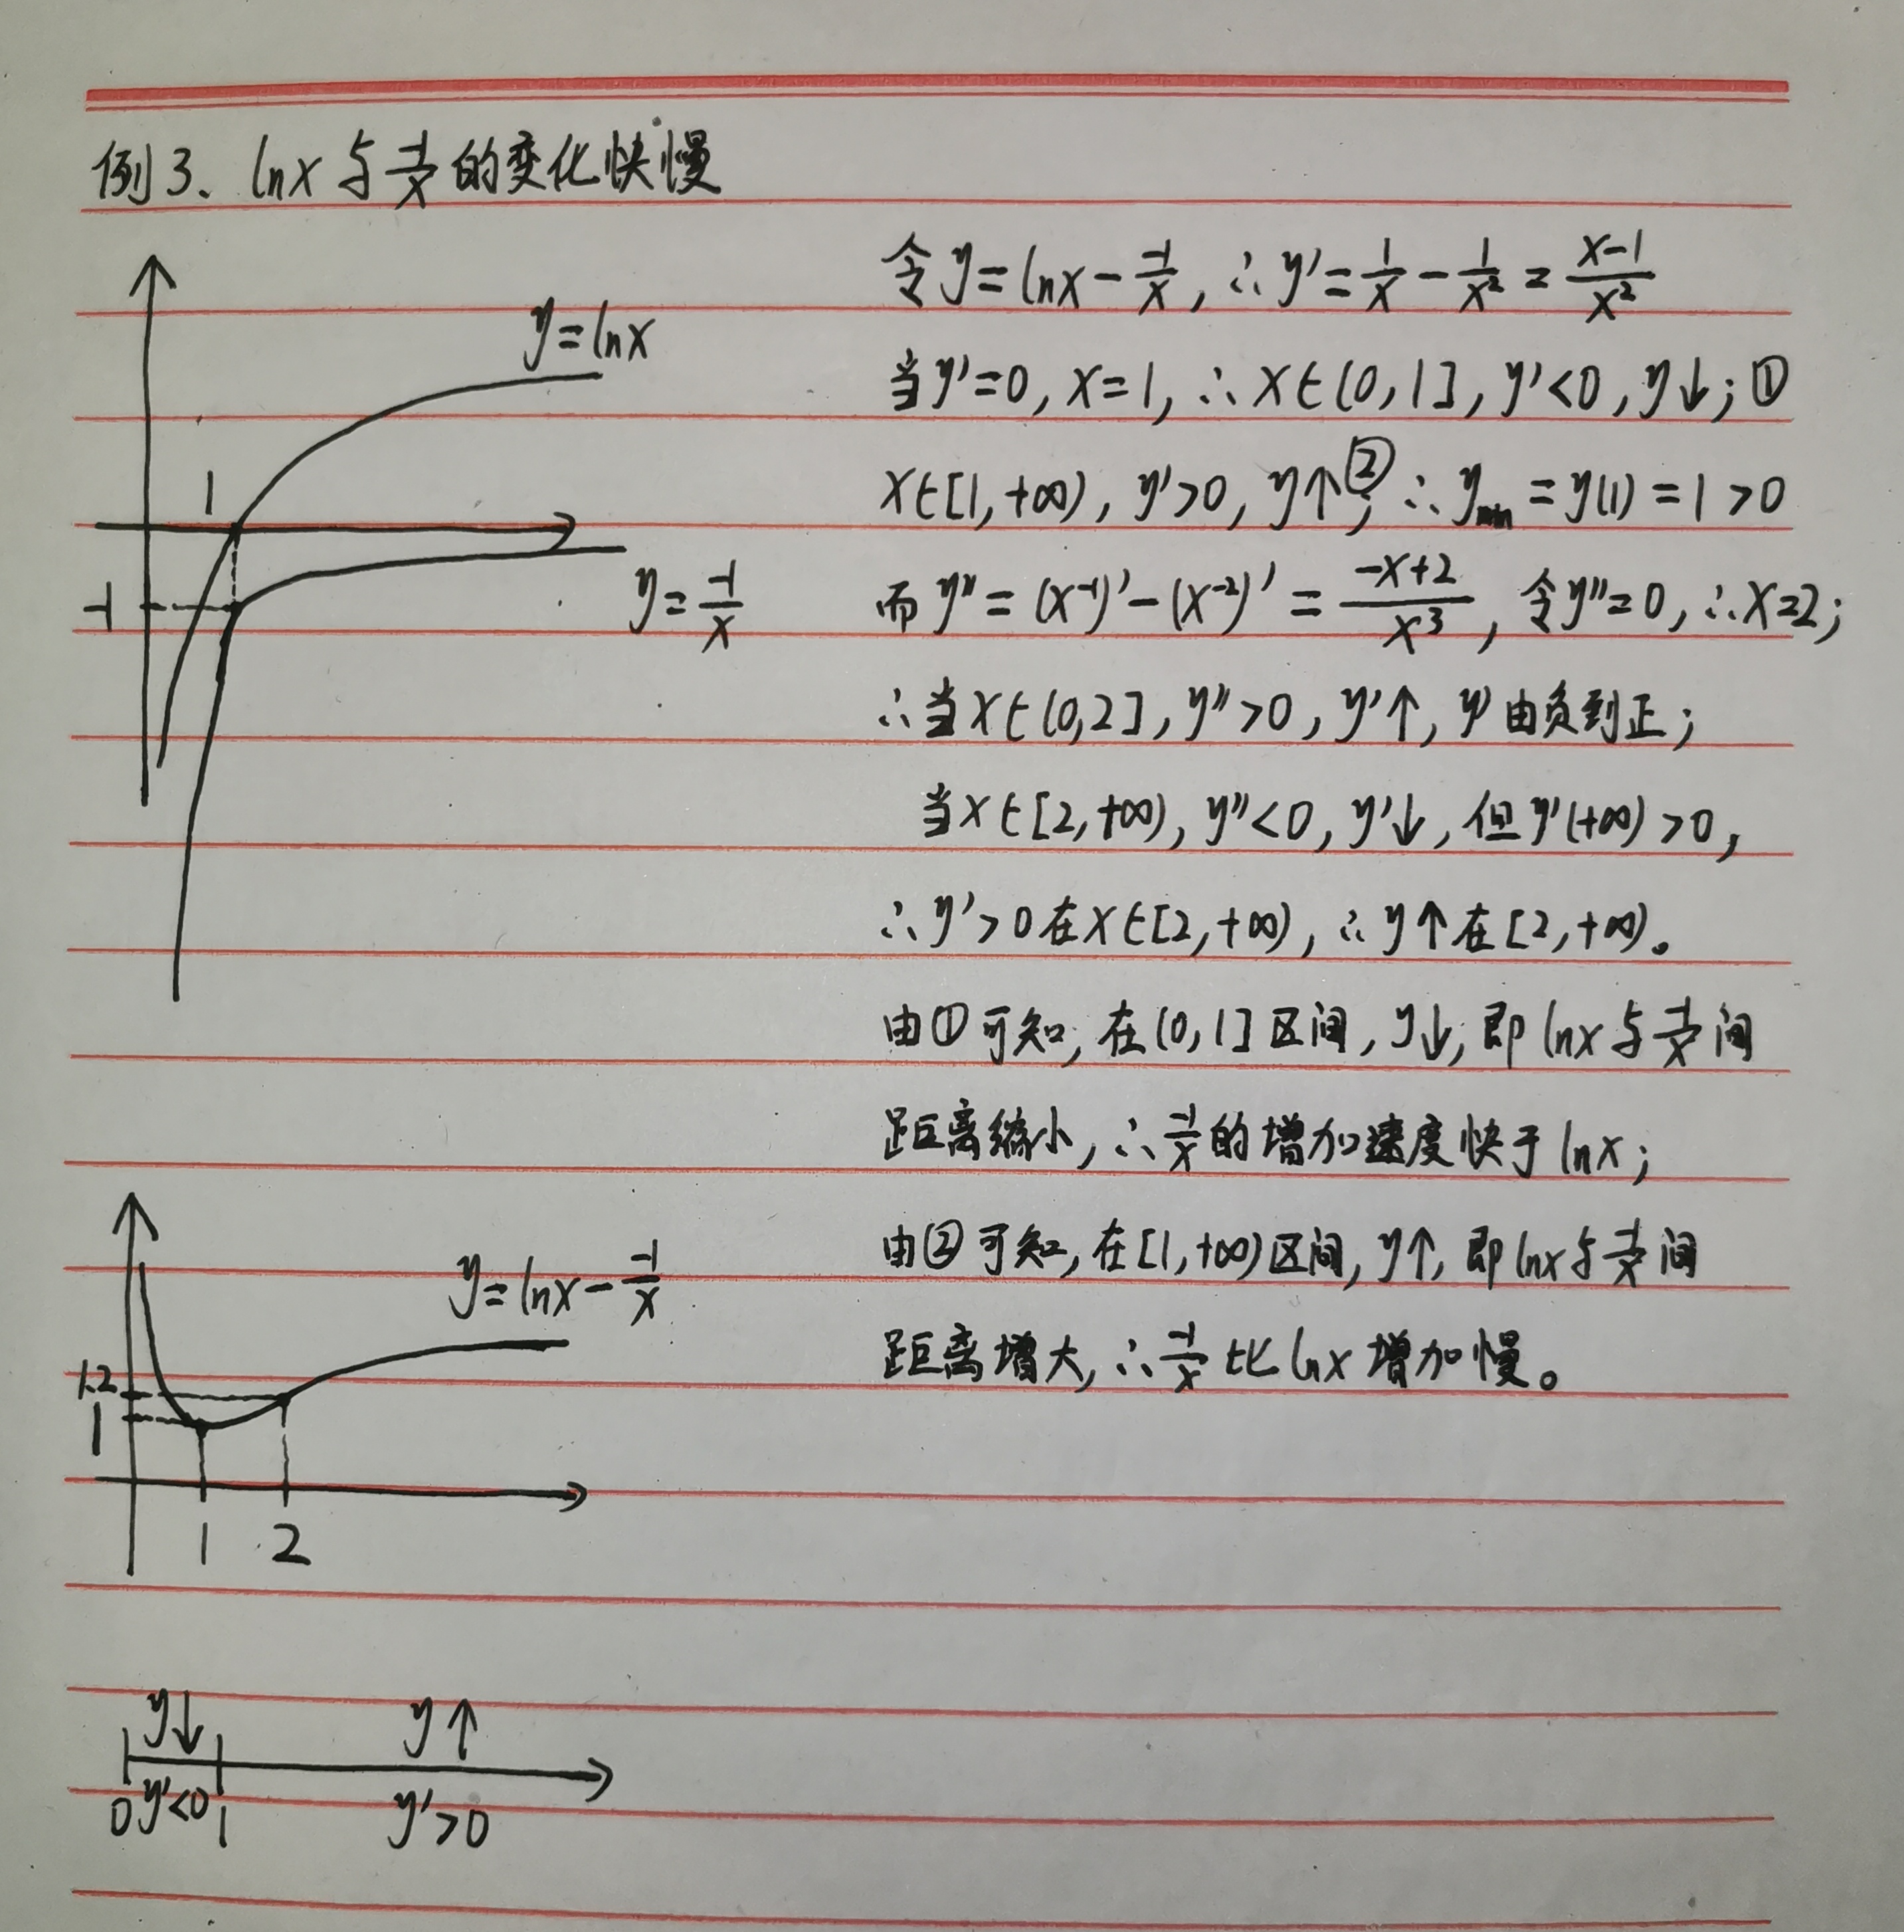 例3、lnx与-1/x的变化快慢
y=lnx
1
-1
y=-1/x
令y=lnx--1/x,∴y'=1/x-1/x²=x-1/x²
当y'=0,x=1,∴x∈(0,1],y'<0,y↓;①
x∈[1,+∞),y'>0,y↑②;∴ymin=y(1)=1>0
而y''=(x⁻¹)'-(x⁻²)'=-x+2/x³,令y''=0,∴x=2;
∴当x∈(0,2],y''>0,y'↑,y'由负到正;
当x∈[2,+∞),y''<0,y'↓,但y'(+∞)>0,
∴y'>0在x∈[2,+∞),∴y↑在[2,+∞)。
由①可知,在(0,1]区间,y↓,即lnx与-1/x间
距离缩小,∴-1/x的增加速度快于lnx;
由②可知,在[1,+∞)区间,y↑,即lnx与-1/x间
距离增大,∴-1/x比lnx增加慢。
y=lnx--1/x
1.2
1
1 2
y↓ y↑
0 y'<0 1 y'>0